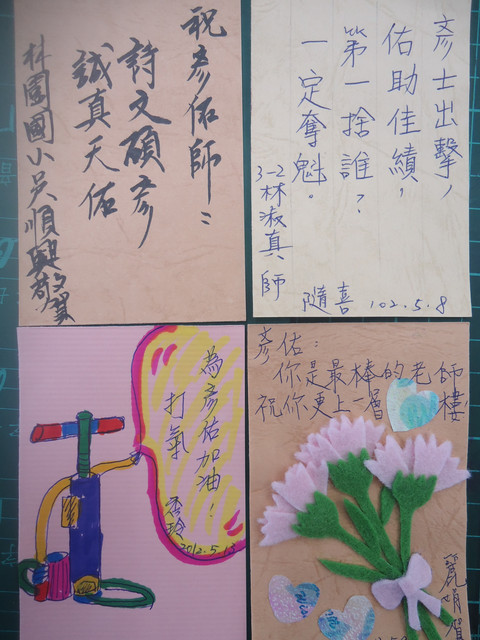 祝彥佑師：
詩文碩彥
誠真天佑
林園國小吳順興敬賀
彥士出擊，
佑助佳績，
第一捨誰？
一定奪魁。
3-2林淑真師
隨喜 102.5.8
為彥佑加油！
打氣
杏玲
2012.5.13
彥佑：
你是最棒的老師
祝你更上一層樓
麗娟賀